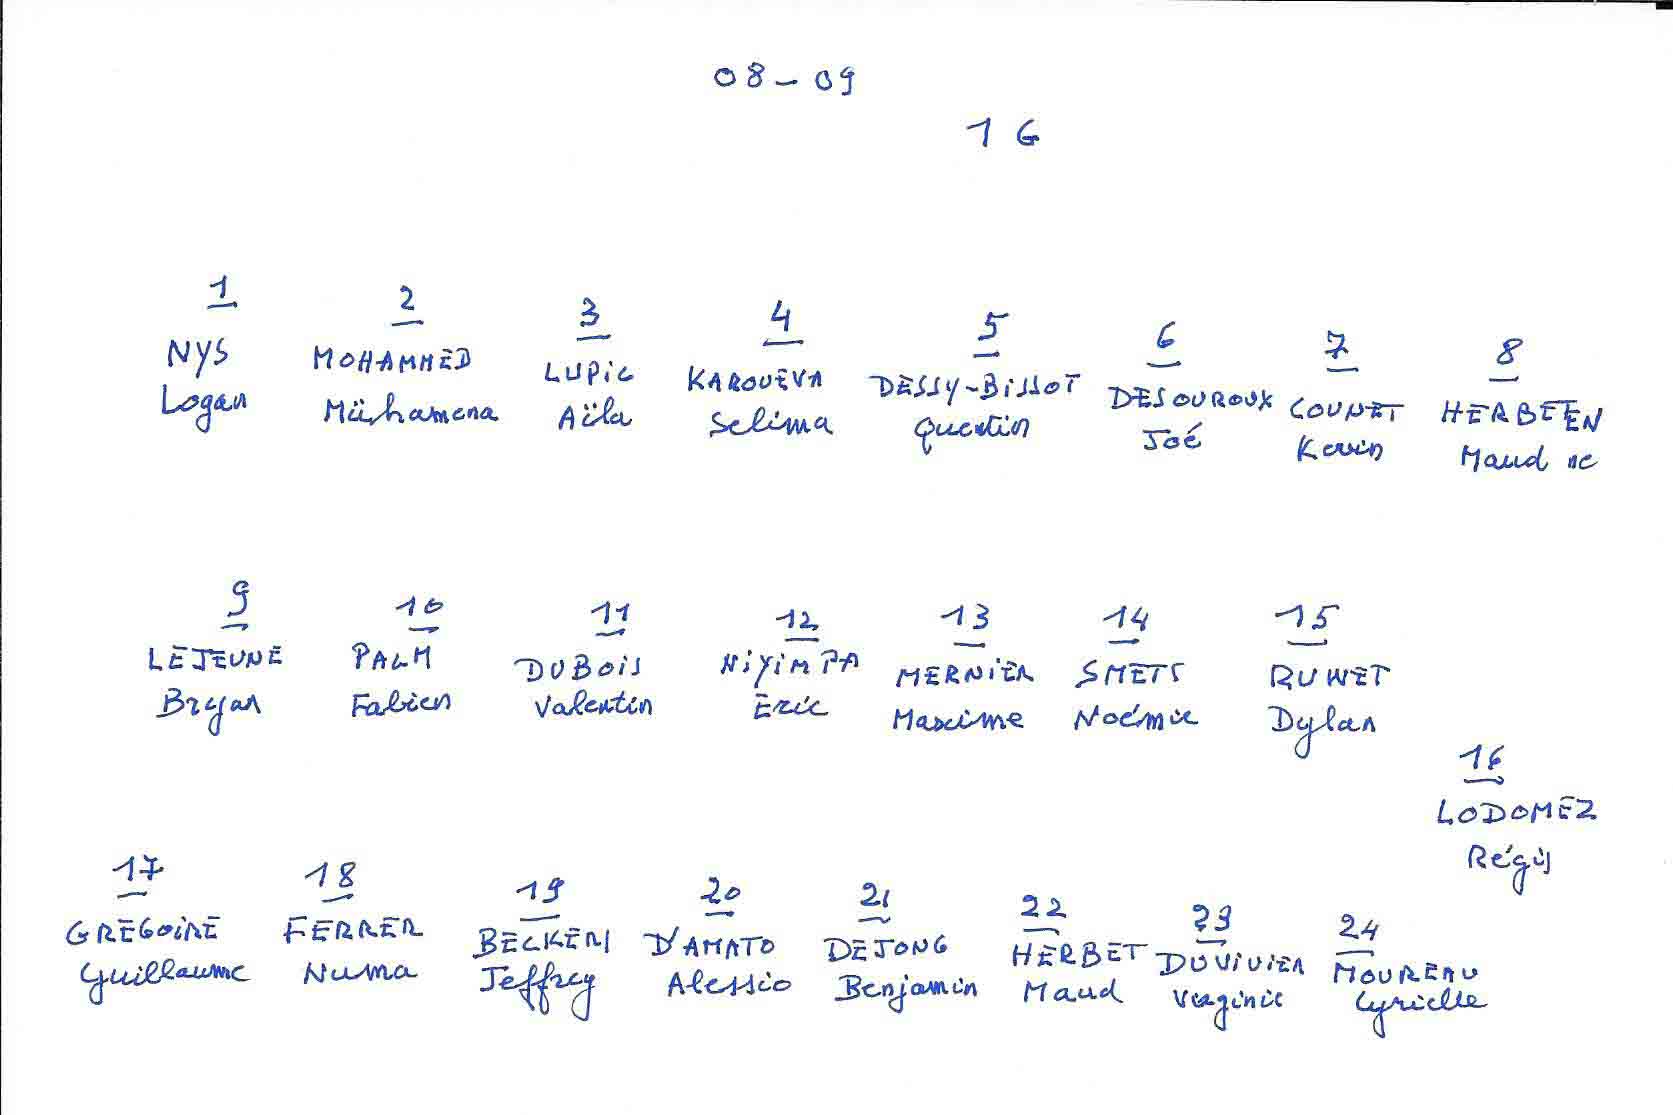 08-09
1G
1 2 3 4 5 6 7 8
NYS MOHAMMED LUPiC KAROUEVA DESSY-BiSSOT DESOUROUX COUNET HERBEEN
Logan Mühamena Aïla Selima Quentin Joé Kevin Maud ne
9 10 11 12 13 14 15
LEJEUNE PALM DUBOiS NiYiMPA MERNiER SMETS RUWET
Bryan Fabien Valentin Eric Maxime Noémie Dylan
16
LODOMEZ
Régis
17 18 19 20 21 22 23 24
GREGOiRE FERRER BECKERS D'AMATO DEJONG HERBET DUViViER MOUREAU
Guillaume Numa Jeffrey Alessio Benjamin Maud Virginie Cyrielle